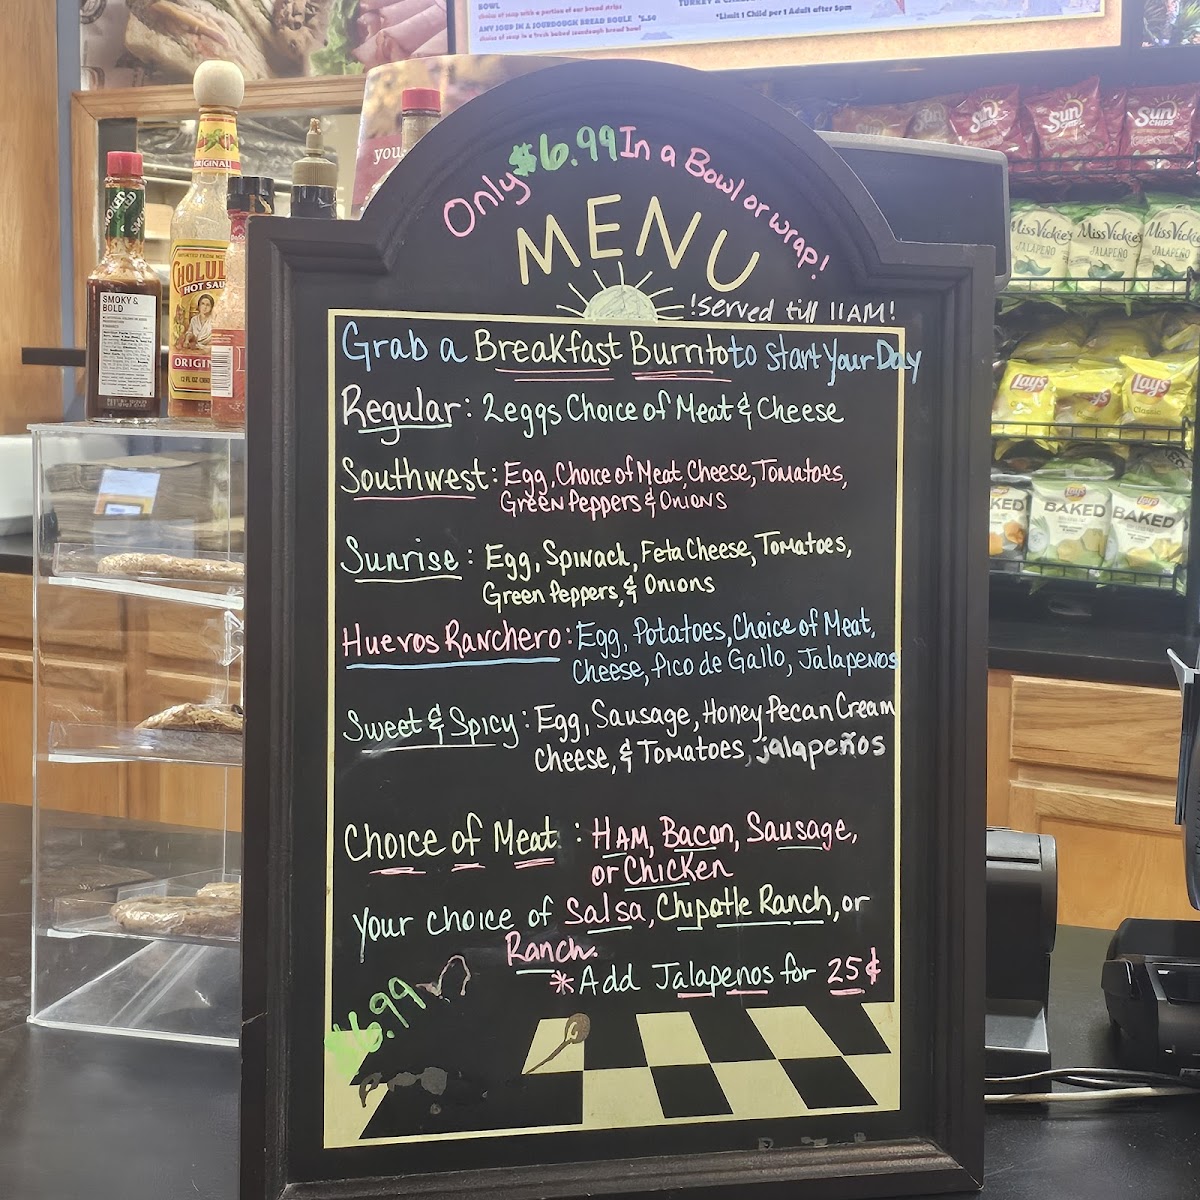 BOWL
choice of soup with a portion of our bread strips
ANY SOUP IN A SOURDOUGH BREAD BOULE $5.50
choice of soup in a fresh baked sourdough bread bowl
*Limit 1 Child per 1 Adult after 5pm
you
Only $6.99 In a Bowl or wrap!
MENU
!served till 11AM!
Grab a Breakfast Burrito to Start Your Day
Regular: 2 eggs Choice of Meat & Cheese
Southwest: Egg, Choice of Meat, Cheese, Tomatoes,
Green Peppers & Onions
Sunrise: Egg, Spinach, Feta Cheese, Tomatoes,
Green Peppers, & Onions
Huevos Ranchero: Egg, Potatoes, Choice of Meat,
Cheese, Pico de Gallo, Jalapenos
Sweet & Spicy: Egg, Sausage, Honey Pecan Cream
Cheese, & Tomatoes, jalapeños
Choice of Meat: Ham, Bacon, Sausage,
or Chicken
Your choice of Salsa, Chipotle Ranch, or
Ranch.
*Add Jalapenos for 25¢
$6.99
SMOKY &
BOLD
ORIGINAL
CHOLUL
HOT SAU
ORIGIN
SUN CHIPS
SUN CHIPS
SUN CHIPS
Miss Vickie's
JALAPEÑO
Miss Vickie's
JALAPEÑO
Miss Vickie's
JALAPEÑO
Lay's
Lay's
Lay's
Classic
BAKED
Lay's
BAKED
Lay's
BAKED